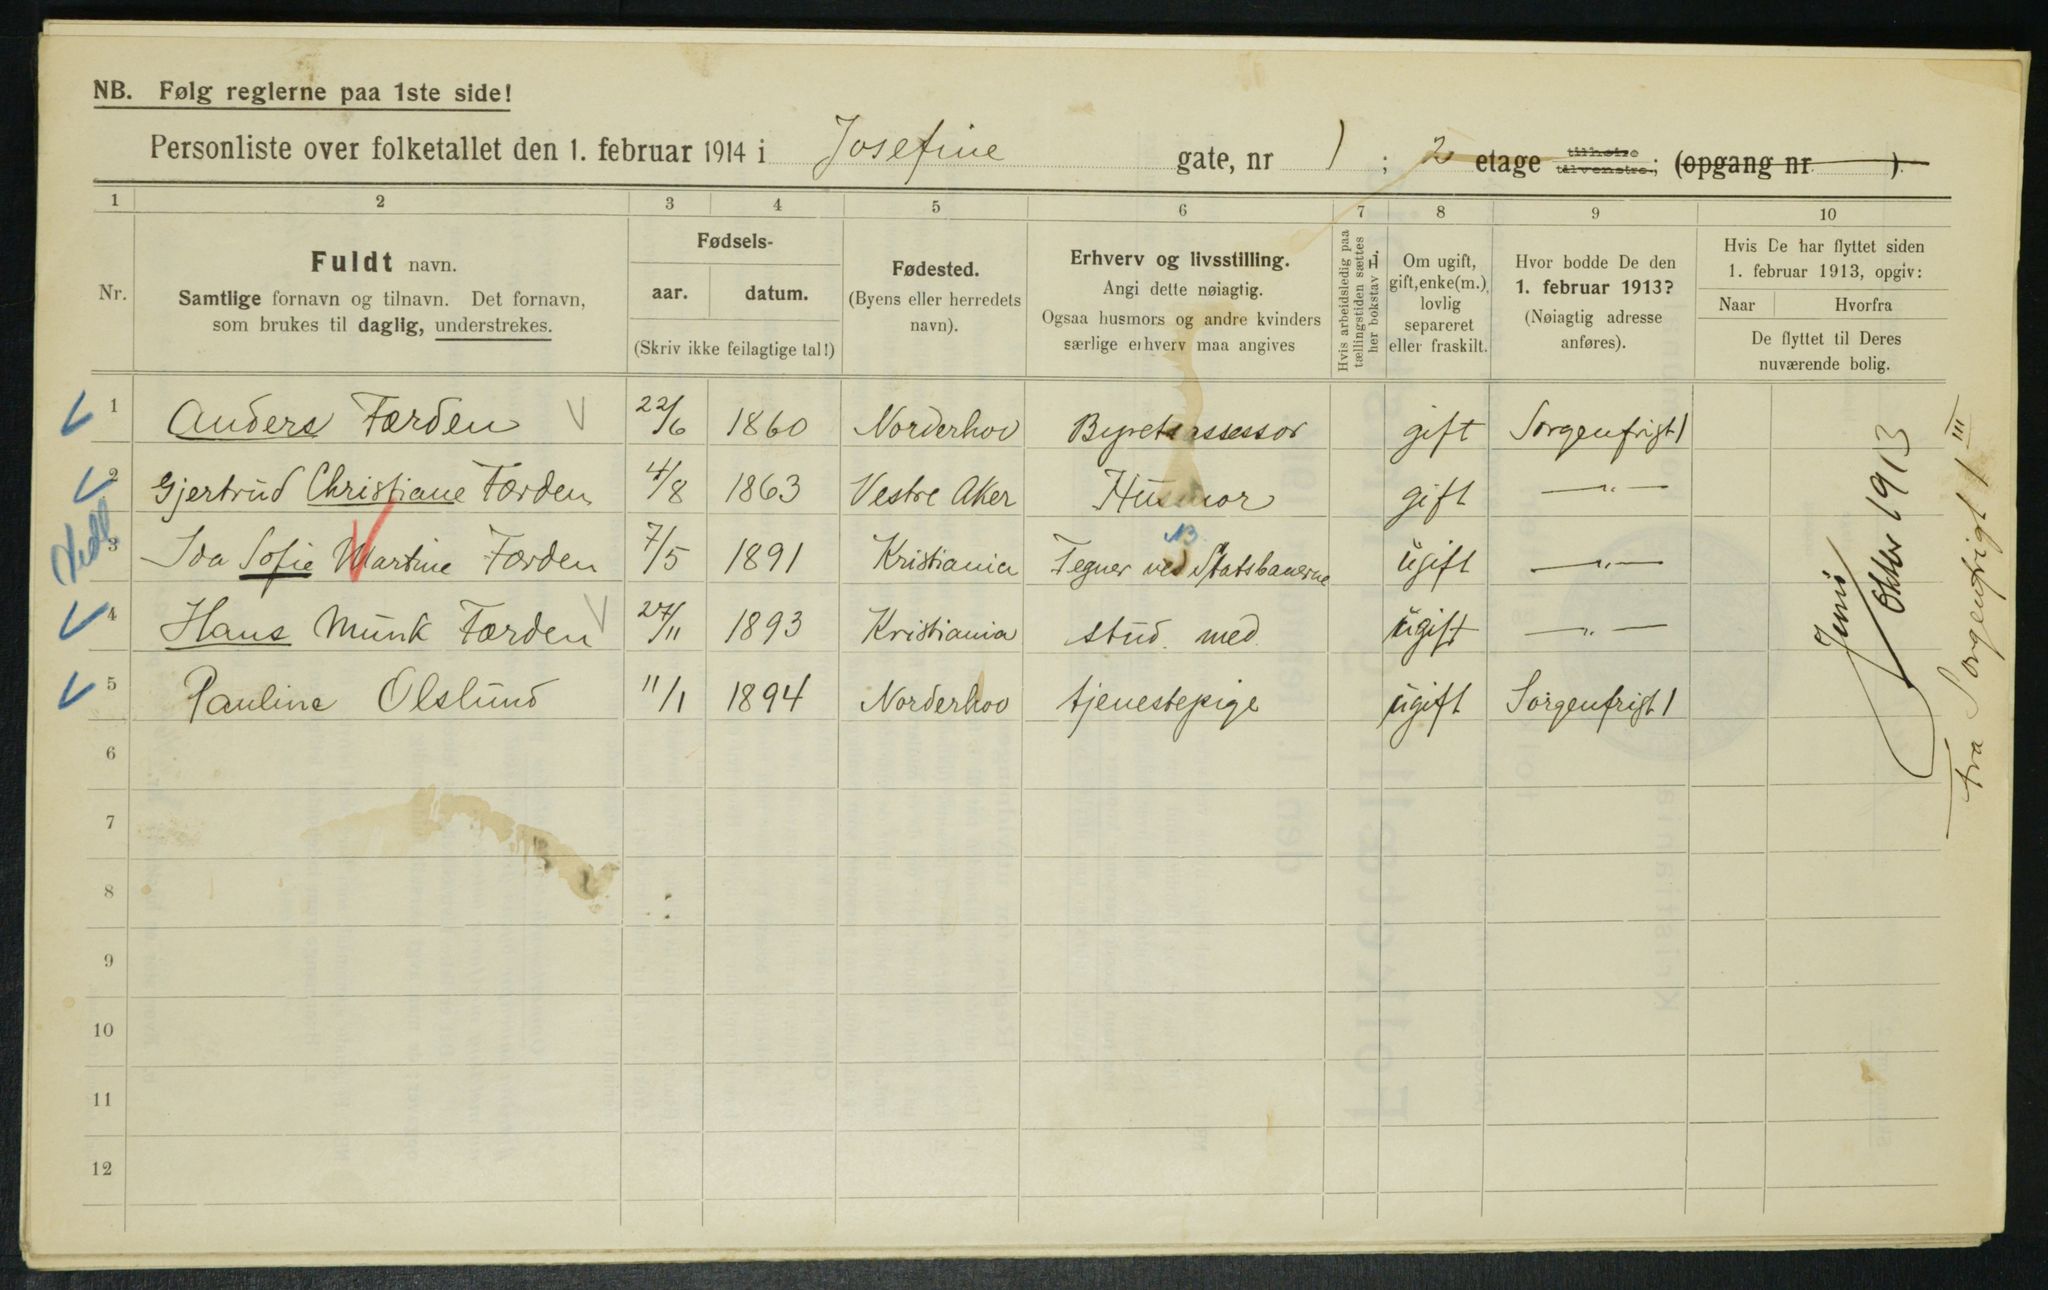 NB. Følg reglerne paa 1ste side!
Personliste over folketallet den 1. februar 1914 i Josefine gate, nr 1 ; 2 etage tilhøire tilvenstre; (opgang nr )
1 2 3 4 5 6 7 8 9 10
Nr.
Fuldt navn.
Samtlige fornavn og tilnavn. Det fornavn,
som brukes til daglig, understrekes.
Fødsels-
aar. datum.
(Skriv ikke feilagtige tal!)
Fødested.
(Byens eller herredets
navn).
Erhverv og livsstilling.
Angi dette nøiagtig.
Ogsaa husmors og andre kvinders
særlige erhverv maa angives
Hvis arbeidsledig paa
tællingstiden sættes
her bokstav
Om ugift,
gift, enke(m.),
lovlig
separeret
eller fraskilt.
Hvor bodde De den
1. februar 1913?
(Nøiagtig adresse
anføres).
Hvis De har flyttet siden
1. februar 1913, opgiv:
Naar Hvorfra
De flyttet til Deres
nuværende bolig.
1 Anders Færden 22/6 1860 Norderhov Byretsassessor gift Sorgenfrigt 1
2 Gjertrud Christiane Færden 4/8 1863 Vestre Aker Husmor gift —"—
3 Ida Sofie Martine Færden 7/5 1891 Kristiania Tegner ved Statsbanerne ugift —"—
4 Hans Munk Færden 27/11 1893 Kristiania stud. med. ugift —"—
5 Pauline Olslund 11/1 1894 Norderhov tjenestepige ugift Sorgenfrigt 1
6
7
8
9
10
11
12
Juni / Okbr 1913
fra Sorgenfrigt 1 III